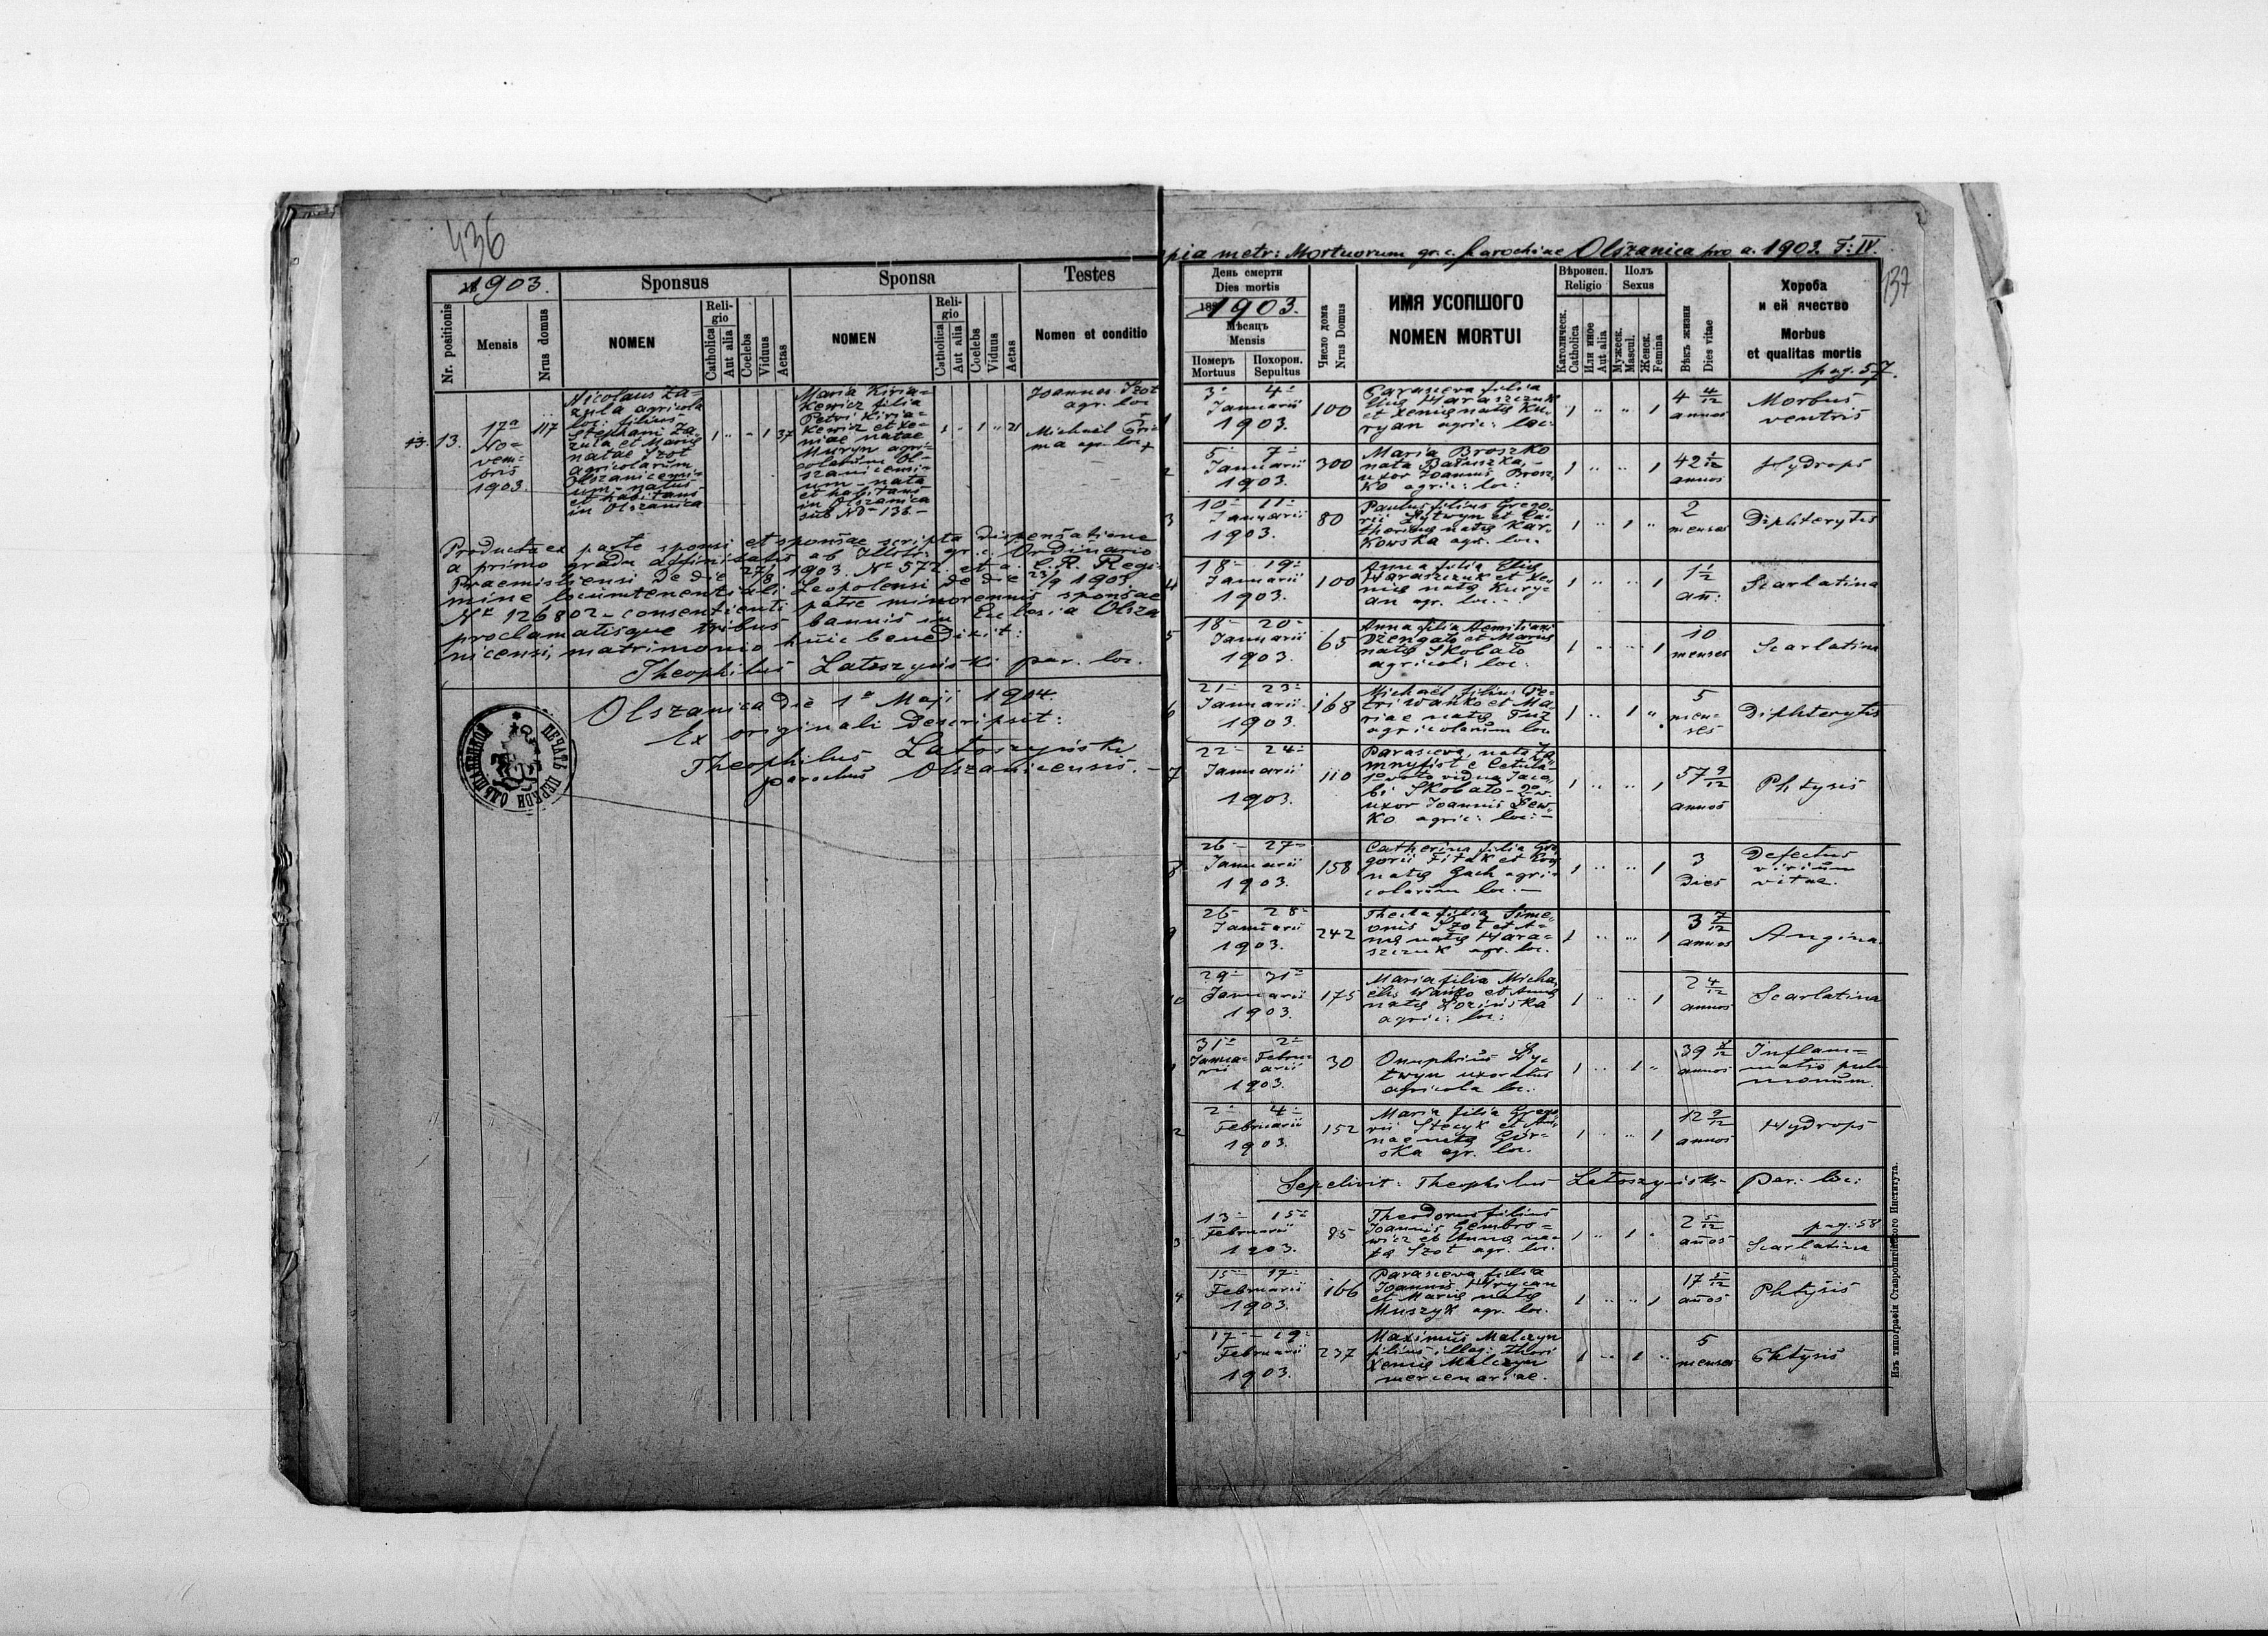 436
1903.
Sponsus
Sponsa
Testes
Nr. positionis
Mensis
Nrus domus
NOMEN
Religio
Catholica
Aut alia
Coelebs
Viduus
Aetas
NOMEN
Religio
Catholica
Aut alia
Coelebs
Viduus
Aetas
Nomen et conditio
13. 13.
17a
No=
vem=
bris
1903.
117
Nicolaus Za=
zula agricola
loc: filius
Stephani Za
zula et Marię
natae Szot
agricolarum
Olszanicensi=
um - natus
et habitans
in Olszanica
1 " - 1 37
Maria Kiria=
kewicz filia
Petri Kiria=
kewicz et Xe=
niae natae
Muryn agri=
colarum Ol=
szanicensi=
um - nata
et habitans
in Olszanica
sub No 136 -
1 " 1 " 21
Joannes Szot
agr. loc
Michael
agr. loc +
Producta ex parte sponsi et sponsae scripta Dispensatione
a primo gradu affinitatis ab Illstr: gr. c. Ordinario
Praemisliensi de die 27/8 1903. Nr 572. et a C. R. Regi=
mine locumtenentiali Leopolensi de die 23/9 1903.
Nr 126802 - consentienti patre minorennis sponsae
proclamatisque tribus bannis in Eclesia Olsza
nicensi, matrimonio huic benedixit:
Theophilus Latoszyński par. loc.
Olszanica die 1a Maji 1904.
Ex originali descripsit:
Theophilus Latoszyński
parochus Olszanicensis. -
ПЕЧАТЬ ЦЕРКВИ
pia metr: Mortuorum gr. c. Parochiae Olszanica pro a. 1903. T: IV.
137
День смерти
Dies mortis
1903.
Мѣсяцъ
Mensis
Померъ
Mortuus
Похорон.
Sepultus
Число дома
Nrus Domus
ИМЯ УСОПШОГО
NOMEN MORTUI
Вѣроисп.
Religio
Католическ.
Catholica
Или иное
Aut alia
Полъ
Sexus
Мужеск.
Mascul.
Женск.
Femina
Вѣкъ жизни
Dies vitae
Хороба
и ей ячество
Morbus
et qualitas mortis
pag. 57.
1
3- 4-
Januarii
1903.
100
Parasceva filia
Elię Haraszczuk
et Xenię natę Ku=
ryan agric: loc:
1 " " 1
4 4/12
annos
Morbus
ventris
2
5- 7-
Januarii
1903.
300
Maria Broszko
nata
uxor Joannis Brosz
ko agric: loc:
1 " " 1
42 1/12
annos
Hydrops
3
10- 11-
Januarii
1903.
80
Paulus filius Grego=
rii Lytwyn et Ca=
therinę natę Kar=
kowska agr. loc.
1 " 1 "
2
menses
Diphterytis
4
18- 19-
Januarii
1903.
100
Anna filia Elię
Haraszczuk et Xe=
nię natę Kury=
an agr. loc.
1 " " 1
1 1/2
an:
Scarlatina
5
18- 20-
Januarii
1903.
65
Anna filia Aemiliani
et Mariae
natę Skobało
agricol: loc:
1 " " 1
10
menses
Scarlatina
6
21- 23-
Januarii
1903.
168
Michaël filius Pe=
tri Wańko et Ma=
riae natę
agricolarum loc
1 " 1 "
5
men=
ses
Diphterytis
7
22- 24-
Januarii
1903.
110
Parasceva, nata
1o voto vidua Jaco,
bi Skobało - 2o v.
uxor Joannis Lew=
ko agric: loc: -
1 " " 1
57 9/12
annos
Phtysis
8
26- 27-
Januarii
1903.
158
Catherina filia Gre
gorii Fitak et
natę Gach agri=
colarum loc. -
1 " " 1
3
dies
Defectus
virium
vitae.
9
26- 28-
Januarii
1903.
242
Thecla filia Sime=
onis Szot et A=
nnę natę Hara=
szczuk agr. loc.
1 " " 1
3 7/12
annos
Angina
10
29- 31-
Januarii
1903.
175
Maria filia Micha,
ëlis Wańko et Annę
natę Łozińska
agric: loc:
1 " " 1
2 4/12
annos
Scarlatina
1
31- 2-
Janua= Febru=
rii arii
1903.
30
Onuphrius Ly=
twyn uxoratus
agricola loc.
1 " 1 "
39 7/12
annos
Inflam=
matio pul
monum.
2
2- 4-
Februarii
1903.
152
Maria filia Grego
rii Stecyk et An,
nae natę Gór=
ska agr. loc.
1 " " 1
12 9/12
annos
Hydrops
Sepelivit: Theophilus Latoszyński Par. loc:
3
13- 15-
Februarii
1903.
85
Theodorus filius
Joannis Gembro=
wicz et Annę na=
tę Szot agr. loc.
1 " 1 "
2 5/12
años
pag. 58
Scarlatina
4
15- 17-
Februarii
1903.
166
Parasceva filia
Joannis Hrycan
et Marię natę
Muszyk agr. loc.
1 " " 1
17 5/12
años
Phtysis
5
17- 19-
Februarii
1903.
237
Maximus Malczyn
filius illeg: thori
Xenię Malczyn
mercenariae.
1 " 1 "
5
menses
Phtysis
Изъ типографіи Ставропигійского Института.